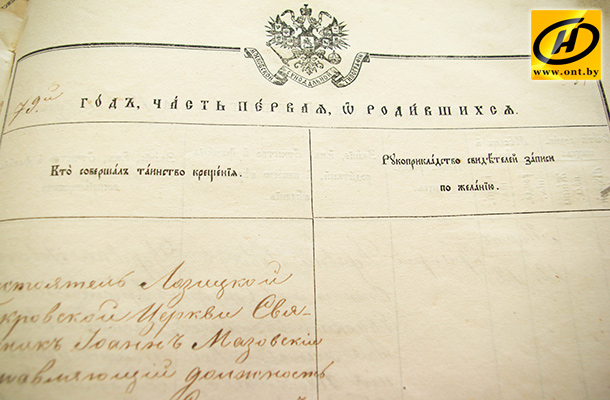 www.ont.by
79.й годъ, часть пе́рвая, ѡ роди́вшихся.
Кто̀ совершалъ та́инство креще́нїя.
Рꙋкоприкла́дство свидѣ́телей за́писи
по жела́нїю.
стоятель Лазицкой
кровской Церкви Свя-
ник Іоаннъ Мазовскій
авляющій должность